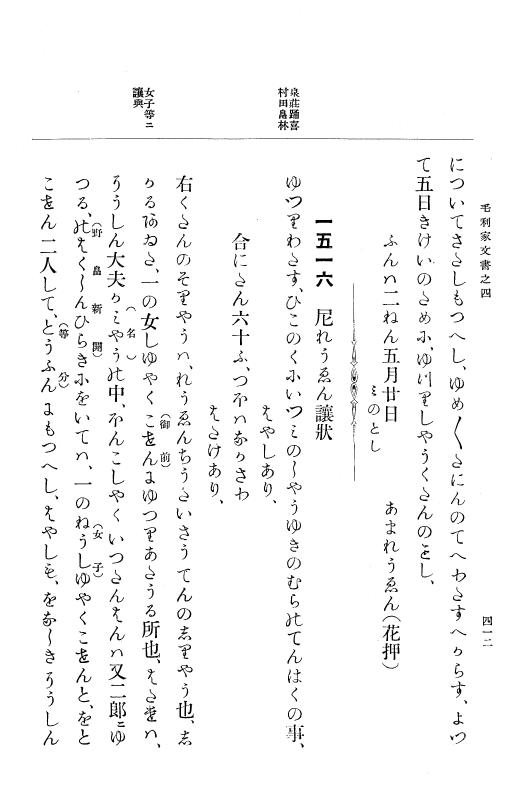 毛利家文書之四
四一二
についてさたしもつへし、ゆめ〱たにんのてへわたすへからす、よつ
て五日きけいのためニ、ゆつりしやうくたんのことし、
ふんハ二ねん五月廿日
ミのとし
あまれうゑん(花押)
一五一六 尼れうゑん讓狀
泉莊踊喜
村田畠林
ゆつりわたす、ひこのくにいつミのしやうゆきのむらのてんはくの事、
はやしあり、
合にたん六十ふ、つほハなかさわ
はたけあり、
女子等ニ
讓與
右くたんのそりやうハ、れうゑんちうたいさうてんのしりやう也、し
かるあゐた、一の女しゆやくこせんにゆつりあたうる所也、はたけハ、
(御前)
ろうしん大夫かミやうの中、ふんこしやくいつたんはんハ又二郎ニゆ
(名)
つる、のはく〱んひらきにをいてハ、一のねうしゆやくこせんと、をと
(野畠新開)
(女子)
こせん二人して、とうふんにもつへし、はやしも、をなしきろうしん
(等分)